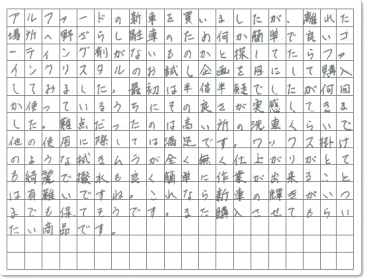 アルファードの新車を買いましたが、離れた
場所へ野ざらし駐車のため何か簡単で良いコ
ーティング剤がないものかと探してたらファ
インクリスタルのお試し企画を目にして購入
してみました。最初は半信半疑でしたが何回
か使っているうちにその良さが実感してきま
した。難点だったのは高い所の洗車くらいで
他の使用に際しては満足です。ワックス掛け
のような拭きムラが全く無く仕上がりがとて
も綺麗で撥水も良く簡単に作業が出来ること
は有難いですね。これなら新車の輝きがいつ
までも保てそうです。また購入させてもらい
たい商品です。